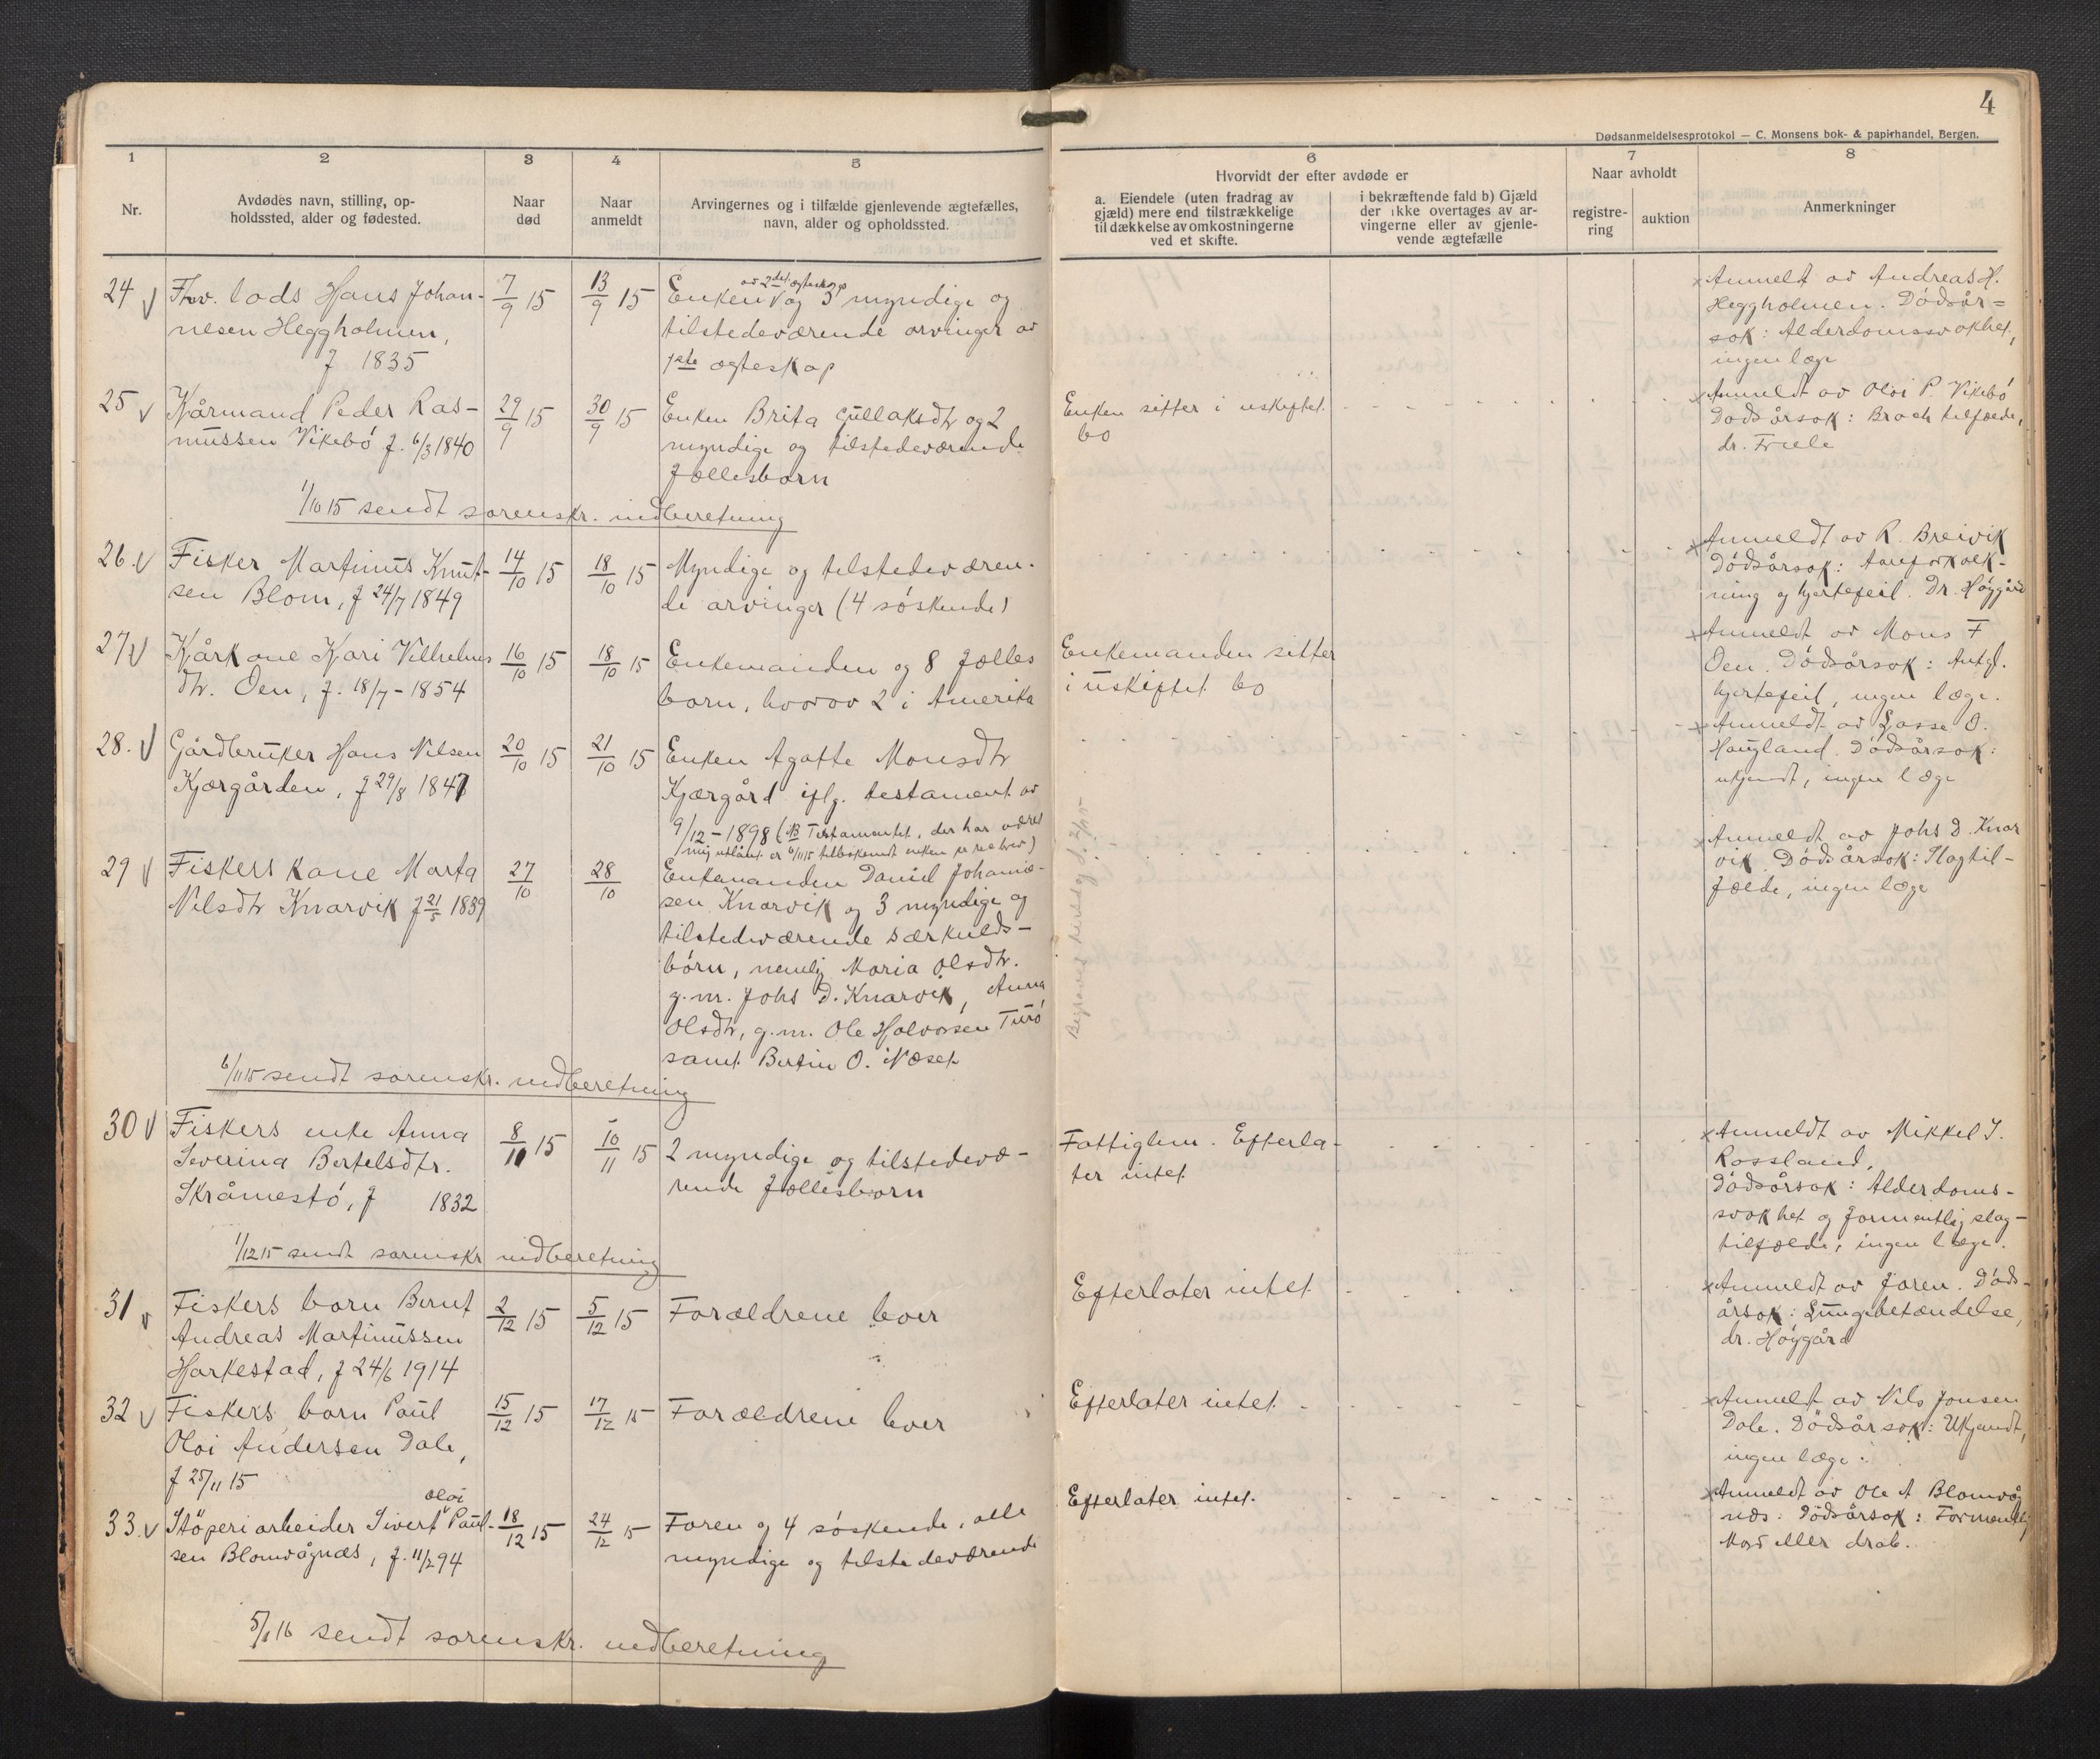 4
Dødsanmeldelsesprotokol — C. Monsens bok- & papirhandel, Bergen.
1 2 3 4 5 6 7 8
Nr.
Avdødes navn, stilling, op-
holdssted, alder og fødested.
Naar
død
Naar
anmeldt
Arvingernes og i tilfælde gjenlevende ægtefælles,
navn, alder og opholdssted.
Hvorvidt der efter avdøde er
a. Eiendele (uten fradrag av
gjæld) mere end tilstrækkelige
til dækkelse av omkostningerne
ved et skifte.
i bekræftende fald b) Gjæld
der ikke overtages av ar-
vingerne eller av gjenle-
vende ægtefælle
Naar avholdt
registre-
ring
auktion
Anmerkninger
24 Fhv. lods Hans Johan-
nesen Heggholmen,
f 1835
7/9 15
13/9 15
av 2det ægteskap
Enken og 3 myndige og
tilstedeværende arvinger av
1ste ægteskap
Anmeldt av Andreas H.
Heggholmen. Dødsår=
sak: Alderdomssvakhet,
ingen læge
25 Kårmand Peder Ras-
mussen Vikebö f. 6/3 1840
29/9 15
30/9 15
Enken Brita Gullaksdtr og 2
myndige og tilstedeværende
fællesbarn
Enken sitter i uskiftet
bo
Anmeldt av Olai P. Vikebö
Dødsårsak: Brach tilfælde,
dr. Friele
1/10 15 sendt sorenskr. indberetning
26. Fisker Martinus Knut-
sen Blom, f 24/7 1849
14/10 15
18/10 15
Myndige og tilstedeværen-
de arvinger (4 söskende)
Anmeldt av R. Breivik
Dødsårsak: Aareforkalk-
ning og hjertefeil. Dr. Höygård
27 Kårkone Kari Vilhelms
dtr. Oen, f. 18/7 - 1854
16/10 15
18/10 15
Enkemanden og 8 fælles
barn, hvorav 2 i Amerika
Enkemanden sitter
i uskiftet bo
Anmeldt av Mons F
Oen. Dødsårsak: Antgl.
hjertefeil, ingen læge.
28. Gårdbruker Hans Nilsen
Kjærgården, f 29/8 1847
20/10 15
21/10 15
Enken Agatte Monsdtr
Kjærgård iflg. testament av
9/12 - 1898 (NB Testamentet, der har været
mig utlånt er 6/11 15 tilbakesendt enken pr rek brev)
Anmeldt av Lasse O.
Haugland. Dødsårsak:
ukjendt, ingen læge
29 Fiskers kone Marta
Nilsdtr Knarvik f 21/5 1839
27/10
28/10
Enkemanden Daniel Johanne-
sen Knarvik og 3 myndige og
tilstedeværende særkulds-
börn, nemlig Maria Olsdtr.
g.m. Johs D. Knarvik, Anna
Olsdtr, g.m. Ole Halvorsen Turö
samt Bertin O. Næset
Anmeldt av Johs D. Knar
vik. Dødsårsak: Slagtil-
fælde, ingen læge
6/11 15 sendt sorenskr. indberetning
30 Fiskers enke Anna
Severina Bertelsdtr.
Skråmestö, f 1832
8/11 15
10/11 15
2 myndige og tilstedevæ-
rende fællesbarn
Fattiglem. Efterla-
ter intet
Anmeldt av Mikkel I.
Rossland.
Dødsårsak: Alderdoms-
svakhet og formentlig slag-
tilfælde, ingen læge.
1/12 15 sendt sorenskr indberetning
31 Fiskers barn Bernt
Andreas Martinussen
Harkestad, f 24/6 1914
2/12 15
5/12 15
Forældrene lever
Efterlater intet
Anmeldt av faren. Døds-
årsak: Lungebetændelse,
dr. Höygård
32 Fiskers barn Paul
Olai Andersen Dale,
f 25/11 15
15/12 15
17/12 15
Forældrene lever
Efterlater intet
Anmeldt av Nils Jonsen
Dale. Dødsårsak: Ukjendt,
ingen læge.
33. Stöperiarbeider Sivert Olai Paul-
sen Blomvågnæs, f. 11/2 94
18/12 15
24/12 15
Faren og 4 söskende, alle
myndige og tilstedeværende
Efterlater intet.
Anmeldt av Ole A Blomvåg
næs. Dødsårsak: Formentlig
Mord eller drab.
5/1 16 sendt sorenskr. indberetning